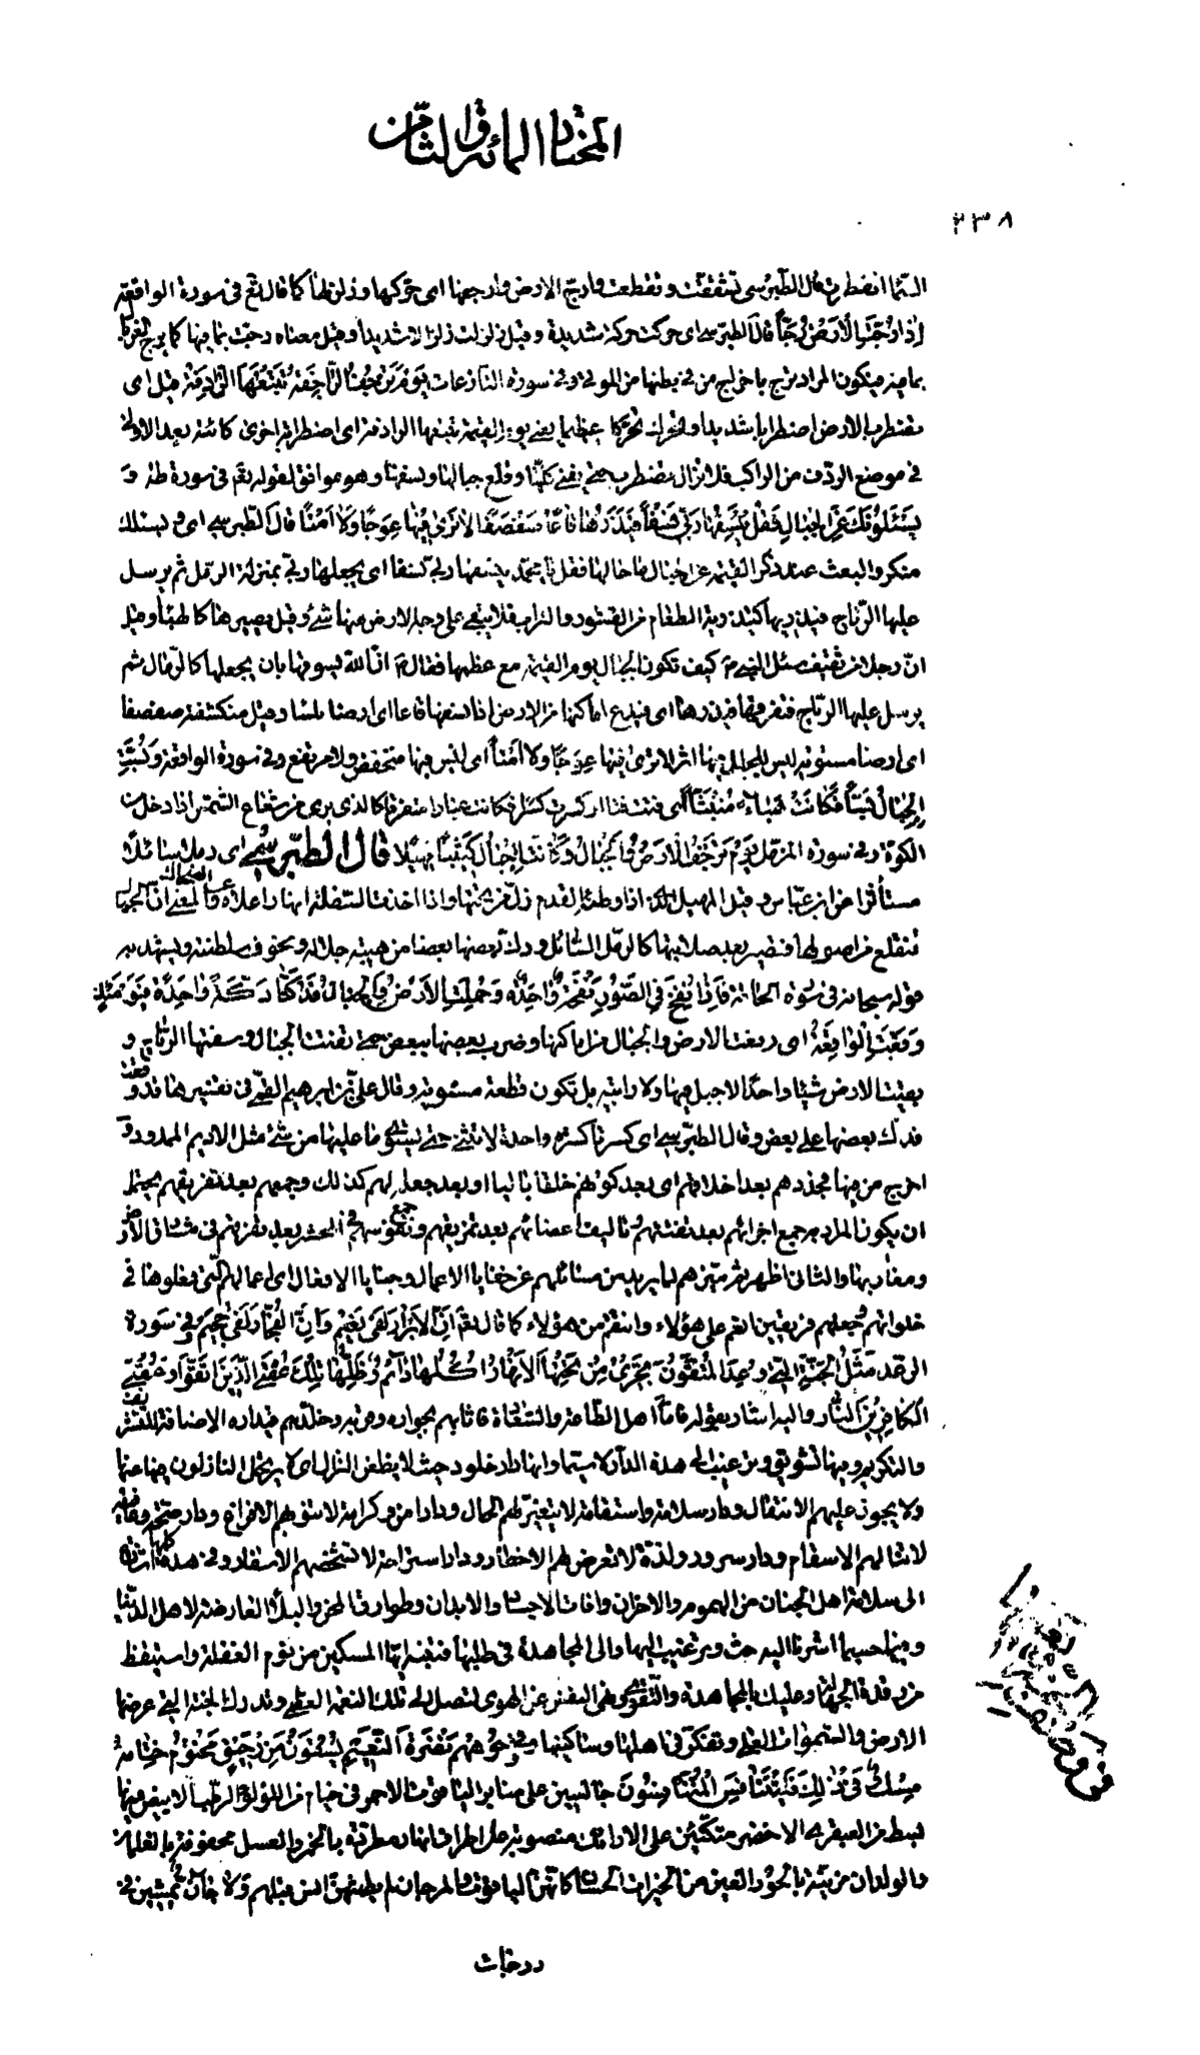 المختار المائة والثامن
٢٣٨
السماء انفطرت قال الطبرسي تشققت وتقطعت وارج الارض وارجفها اى حركها وزلزلها كما قال تعالى فى سورة الواقعة
اذا رُجَّتِ الْاَرْضُ رَجّاً قال الطبرسي اى حركت حركة شديدة وقيل زلزلت زلزالا شديدا وقيل معناه رجت بما فيها كما يرج الغربال
بما فيه فيكون المراد ترج باخراج من فى بطنها من الموتى وفى سورة النازعات يَوْمَ تَرْجُفُ الرَّاجِفَةُ تَتْبَعُهَا الرَّادِفَةُ قيل اى
تضطرب الارض اضطرابا شديدا وتحرك تحركا عظيما يعنى يوم القيمة تتبعها الرادفة اى اضطرابة اخرى كائنة بعد الاولى
فى موضع الردف من الراكب فلا تزال تضطرب حتى يفنى كلها وقلع جبالها ونسفها وهو موافق لقوله تعالى فى سورة طه وَ
يَسْئَلُونَكَ عَنِ الْجِبالِ فَقُلْ يَنْسِفُها رَبّى نَسْفاً فَيَذَرُها قاعاً صَفْصَفاً لا تَرى فيها عِوَجاً وَلا اَمْتاً قال الطبرسي اى ويسئلك
منكروا البعث عند ذكر القيمة عن الجبال ما حالها فقل يا محمد ينسفها ربى نسفا اى يجعلها ربى بمنزلة الرمل ثم يرسل
عليها الرياح فيذريها كتذرية الطعام من القشور والتراب فلا يبقى على وجه الارض منها شئ وقيل يصيرها كالهباء وقيل
ان رجلا من ثقيف سئل النبى ص كيف تكون الجبال يوم القيمة مع عظمها فقال ص ان الله يسوقها بان يجعلها كالرمال ثم
يرسل عليها الرياح فتفرقها فيذرها اى فيدع اماكنها من الارض اذا نسفها قاعا اى ارضا ملساء وقيل منكشفة صفصفا
اى ارضا مستوية ليس للجبل فيها اثر لا ترى فيها عِوَجاً ولا اَمْتاً اى ليس فيها منخفض ولا مرتفع وفى سورة الواقعة وَبُسَّتِ
الْجِبالُ بَسّاً فَكانَتْ هَباءً مُنْبَثّاً اى فتتت فتا او كسرت كسرا فكانت غبارا متفرقا كالذى يرى من شعاع الشمس اذا دخل من
الكوة وفى سورة المزمل يَوْمَ تَرْجُفُ الْاَرْضُ وَالْجِبالُ وَكانَتِ الْجِبالُ كَثيباً مَهيلاً قال الطبرسي اى رملا سائلا
متناثرا عن ابن عباس وقيل المهيل الذى اذا وطئته القدم زل من تحتها واذا اخذت اسفله انهار اعلاه عن الضحاك والمعنى ان الجبال
تنقلع من اصولها فتصير بعد صلابتها كالرمل السائل ودك بعضها بعضا من هيبة جلاله ومخوف سطلنته ويشهد به
قوله سبحانه فى سورة الحاقة فَاِذا نُفِخَ فِى الصُّورِ نَفْخَةٌ واحِدَةٌ وَحُمِلَتِ الْاَرْضُ وَالْجِبالُ فَدُكَّتا دَكَّةً واحِدَةً فَيَوْمَئِذٍ
وَقَعَتِ الْواقِعَةُ اى رفعت الارض والجبال من اماكنها وضرب بعضها ببعض حتى تفتت الجبال وسفتها الرياح و
بقيت الارض شيئا واحدا لا جبل فيها ولا رابية بل تكون قطعة مستوية وقال على بن ابرهيم القمى فى تفسيرها قد وقعت
فدك بعضها على بعض وقال الطبرسي اى كسرتا كسرة واحدة لا تثنى حتى يستوى ما عليها من شئ مثل الاديم الممدود و
اخرج من فيها فجددهم بعد اخلاقهم اى بعد كونهم خلقا باليا او بعد جعله لهم كذلك وجمعهم بعد تفريقهم يحتمل
ان يكون المراد به جمع اجزائهم بعد تفتتهم وتاليف اعضائهم بعد تمزيقهم وجمع نفوسهم فى المحشر بعد تفرقهم فى مشارق الارض
ومغاربها والثانى اظهر ثم ميزهم لما يريد من مسائلهم عن خفايا الاعمال وخبايا الافعال اى اعمالهم التى فعلوها فى
خلواتهم وجعلهم فريقين انعم على هؤلاء وانتقم من هؤلاء كما قال تعالى اِنَّ الْاَبْرارَ لَفى نَعيمٍ وَاِنَّ الْفُجّارَ لَفى جَحيمٍ وفى سورة
الرعد مَثَلُ الْجَنَّةِ الَّتى وُعِدَ الْمُتَّقُونَ تَجْرى مِنْ تَحْتِهَا الْاَنْهارُ اُكُلُها دائِمٌ وَظِلُّها تِلْكَ عُقْبَى الَّذينَ اتَّقَوْا وَعُقْبَى
الْكافِرينَ النّارُ واليه اشار بقوله فاما اهل الطاعة والسعادة فاثابهم بجواره وقربه وخلدهم فى داره الاضافة للتشريف
والتكريم وفيها تشويق وترغيب الى هذه الدار لا سيما وانها دار خلود حيث لا يظعن النزال اى لا يرتحل النازلون فيها عنها
ولا يجوز عليهم الانتقال ودار سلامة واستقامة لا تتغير لهم الحال ودار امن وكرامة لا تنوبهم الافزاع ودار صحة وعافية
لا تنالهم الاسقام ودار سرور ولذة لا تعرض لهم الاخطار ودار استراحة لا تشخصهم الاسفار وفى هذه كلها اشارة
الى سلامة اهل الجنان من الهموم والاحزان وافات الاجساد والابدان وطوارق المحن والبلاء العارضة لاهل الدنيا
وفيها حسبما اشرنا اليه حث وترغيب اليها والى المجاهدة فى طلبها فتنبه ايها المسكين من نوم الغفلة واستيقظ
من رقدة الجهالة وعليك بالمجاهدة والتقوى ونهى النفس عن الهوى لتصل الى تلك النعمة العظمى وتدرك الجنة التى عرضها
الارض والسموات العلى وتفكر فى اهلها وساكنيها فى وُجُوهِهِمْ نَضْرَةَ النَّعيمِ يُسْقَوْنَ مِنْ رَحيقٍ مَخْتُومٍ خِتامُهُ
مِسْكٌ وَفى ذلِكَ فَلْيَتَنافَسِ الْمُتَنافِسُونَ جالسين على منابر الياقوت الاحمر فى خيام من اللؤلؤ الرطب الابيض فيها
بسط من العبقرى الاخضر متكئين على الارائك منصوبة على اطراف انهار مطردة بالخمر والعسل محفوفة بالغلمان
والولدان مزينة بالحور العين من الخيرات الحسان كانهن الياقوت والمرجان لم يطمثهن انس قبلهم ولا جان يمشين فى
درجات